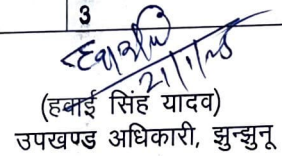 3
(हवाई सिंह यादव)
उपखण्ड अधिकारी, झुन्झुनू